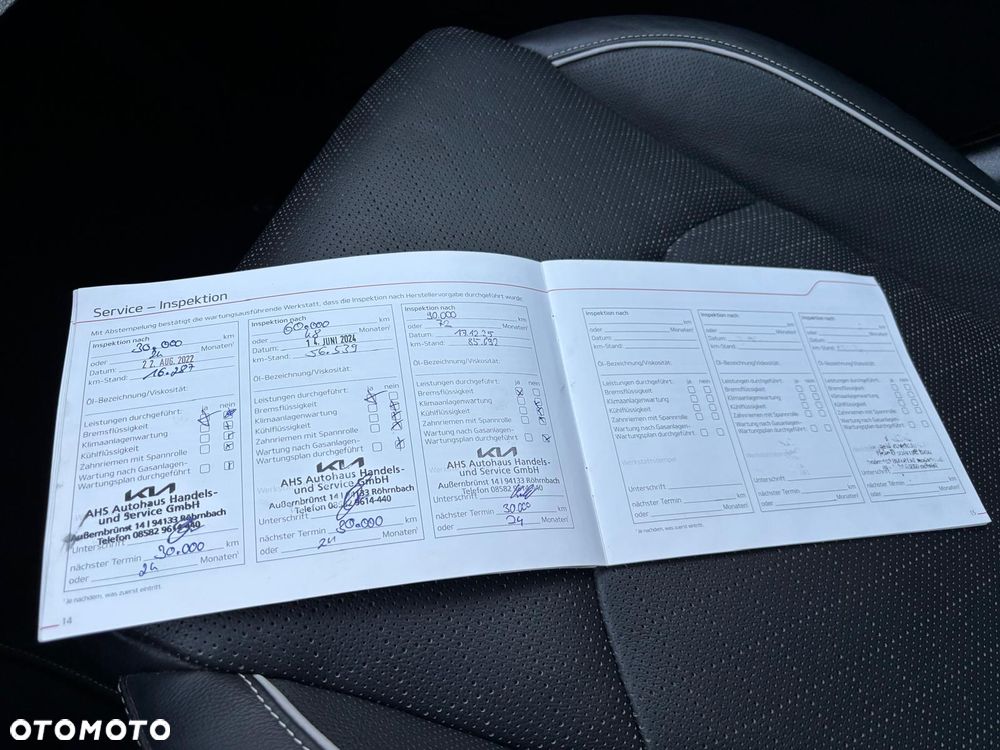 Service – Inspektion
Mit Abstempelung bestätigt die wartungsausführende Werkstatt, dass die Inspektion nach Herstellervorgabe durchgeführt wurde.
Inspektion nach
30.000 km
oder 24 Monaten¹
Datum: 22. AUG. 2022
km-Stand: 16.287
Öl-Bezeichnung/Viskosität:
Leistungen durchgeführt: ja nein
Bremsflüssigkeit
Klimaanlagenwartung
Kühlflüssigkeit
Zahnriemen mit Spannrolle
Wartung nach Gasanlagen-
Wartungsplan durchgeführt
KIA
AHS Autohaus Handels-
und Service GmbH
Außernbrünst 14 I 94133 Röhrnbach
Telefon 08582 9614-440
Unterschrift
nächster Termin 30.000 km
oder 24 Monaten¹
¹ Je nachdem, was zuerst eintritt.
14
Inspektion nach
60.000 km
oder 48 Monaten¹
Datum: 14. JUNI 2024
km-Stand: 56.539
Öl-Bezeichnung/Viskosität:
Leistungen durchgeführt: ja nein
Bremsflüssigkeit
Klimaanlagenwartung
Kühlflüssigkeit
Zahnriemen mit Spannrolle
Wartung nach Gasanlagen-
Wartungsplan durchgeführt
KIA
AHS Autohaus Handels-
und Service GmbH
Außernbrünst 14 I 94133 Röhrnbach
Telefon 08582 9614-440
Unterschrift
nächster Termin 30.000 km
oder 24 Monaten¹
Inspektion nach
90.000 km
oder 72 Monaten¹
Datum:
km-Stand: 85.692
Öl-Bezeichnung/Viskosität:
Leistungen durchgeführt: ja nein
Bremsflüssigkeit
Klimaanlagenwartung
Kühlflüssigkeit
Zahnriemen mit Spannrolle
Wartung nach Gasanlagen-
Wartungsplan durchgeführt
KIA
AHS Autohaus Handels-
und Service GmbH
Außernbrünst 14 I 94133 Röhrnbach
Telefon 08582 9614-440
Unterschrift
nächster Termin 30.000 km
oder 24 Monaten¹
Inspektion nach
km
oder Monaten¹
Datum:
km-Stand:
Öl-Bezeichnung/Viskosität:
Leistungen durchgeführt: ja nein
Bremsflüssigkeit
Klimaanlagenwartung
Kühlflüssigkeit
Zahnriemen mit Spannrolle
Wartung nach Gasanlagen-
Wartungsplan durchgeführt
Werkstattstempel
Unterschrift
nächster Termin km
oder Monaten¹
¹ Je nachdem, was zuerst eintritt.
Inspektion nach
km
oder Monaten¹
Datum:
km-Stand:
Öl-Bezeichnung/Viskosität:
Leistungen durchgeführt: ja nein
Bremsflüssigkeit
Klimaanlagenwartung
Kühlflüssigkeit
Zahnriemen mit Spannrolle
Wartung nach Gasanlagen-
Wartungsplan durchgeführt
Unterschrift
nächster Termin km
oder Monaten¹
Inspektion nach
km
oder Monaten¹
Datum:
km-Stand:
Öl-Bezeichnung/Viskosität:
Leistungen durchgeführt: ja nein
Bremsflüssigkeit
Klimaanlagenwartung
Kühlflüssigkeit
Zahnriemen mit Spannrolle
Wartung nach Gasanlagen-
Wartungsplan durchgeführt
Unterschrift
nächster Termin km
oder Monaten¹
15
OTOMOTO